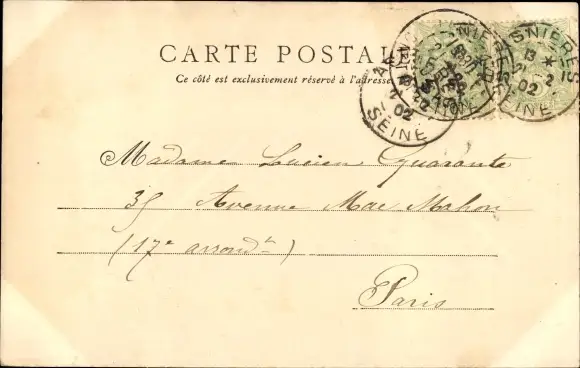 CARTE POSTALE
Ce côté est exclusivement réservé à l'adresse
ASNIERES
13 * 2
02
SEINE
SNIERES
13 *
2
02
SEINE
Madame Lucien Quarante
35 Avenue Mac Mahon
(17e arrondt)
Paris